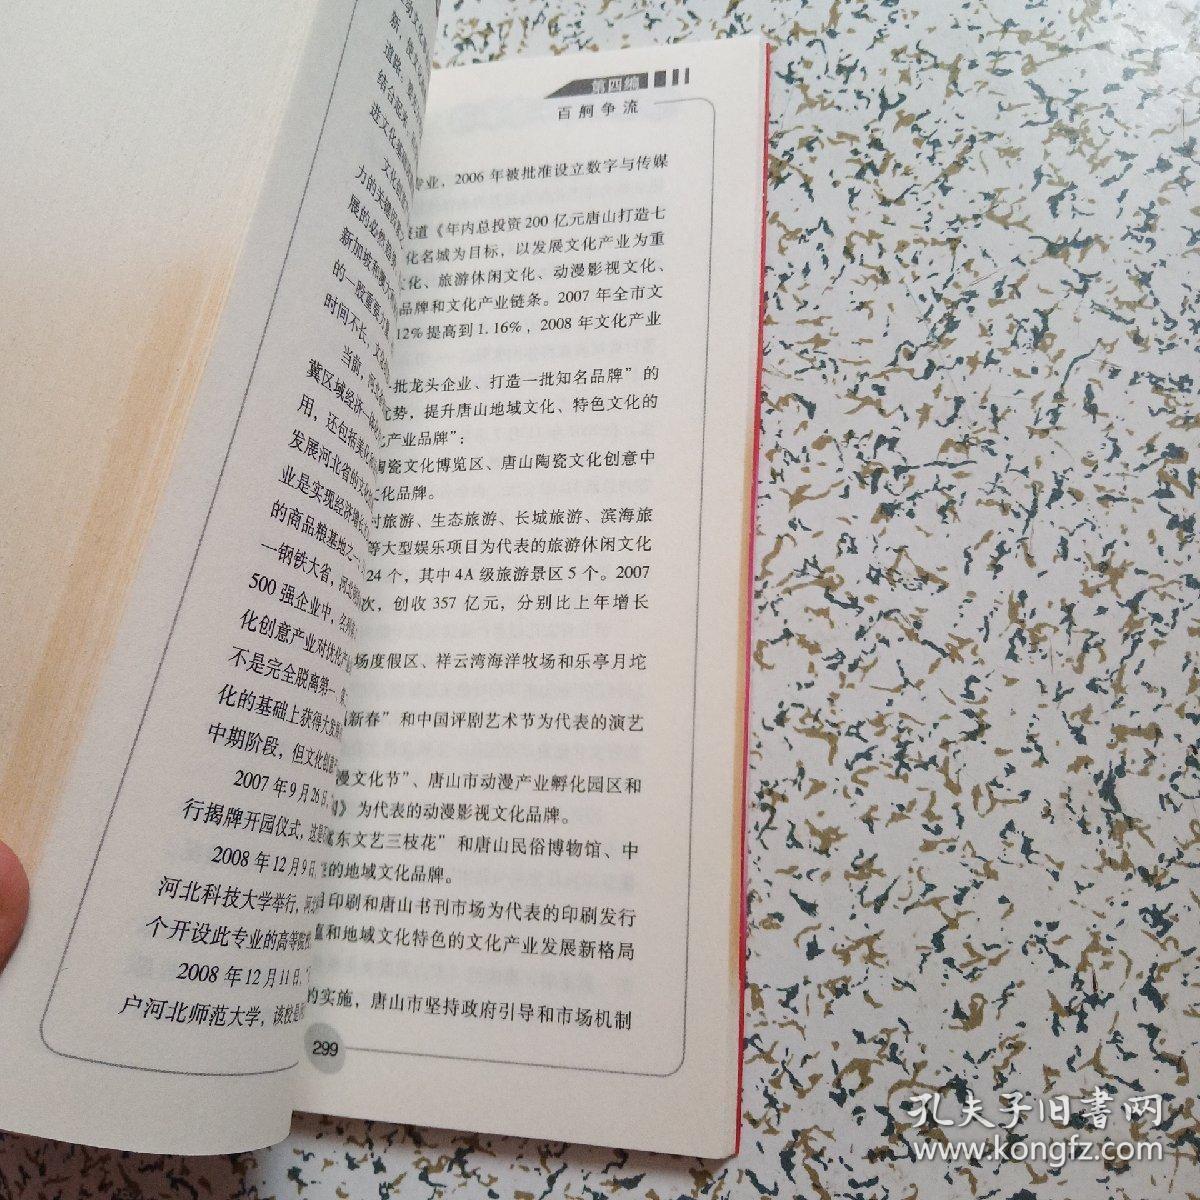 新，使文化
道路。要
结合起来，
进文化
文化创意
力的关键
展的必然
新加坡和
的一股重要力
时间不长，文化
当前，河
冀区域经济一
用，还包括美化
发展河北省的文化
业是实现经济增长
的商品粮基地之一
—钢铁大省，河北
500强企业中，名列
化创意产业对优化产
不是完全脱离第一
化的基础上获得大发展
中期阶段，但文化创意
2007年9月26日，
行揭牌开园仪式，这是
2008年12月9日，
河北科技大学举行，
个开设此专业的高等院校
2008年12月11日，
户河北师范大学，该校是
第四编
百舸争流
专业，2006年被批准设立数字与传媒
报道《年内总投资200亿元唐山打造七
化名城为目标，以发展文化产业为重
文化、旅游休闲文化、动漫影视文化、
品牌和文化产业链条。2007年全市文
12%提高到1.16%，2008年文化产业
批龙头企业、打造一批知名品牌”的
优势，提升唐山地域文化、特色文化的
化产业品牌”：
陶瓷文化博览区、唐山陶瓷文化创意中
文化品牌。
村旅游、生态旅游、长城旅游、滨海旅
等大型娱乐项目为代表的旅游休闲文化
24个，其中4A级旅游景区5个。2007
次，创收357亿元，分别比上年增长
场度假区、祥云湾海洋牧场和乐亭月坨
新春”和中国评剧艺术节为代表的演艺
漫文化节”、唐山市动漫产业孵化园区和
》为代表的动漫影视文化品牌。
东文艺三枝花”和唐山民俗博物馆、中
的地域文化品牌。
印刷和唐山书刊市场为代表的印刷发行
和地域文化特色的文化产业发展新格局
的实施，唐山市坚持政府引导和市场机制
299
孔夫子旧书网
www.kongfz.com